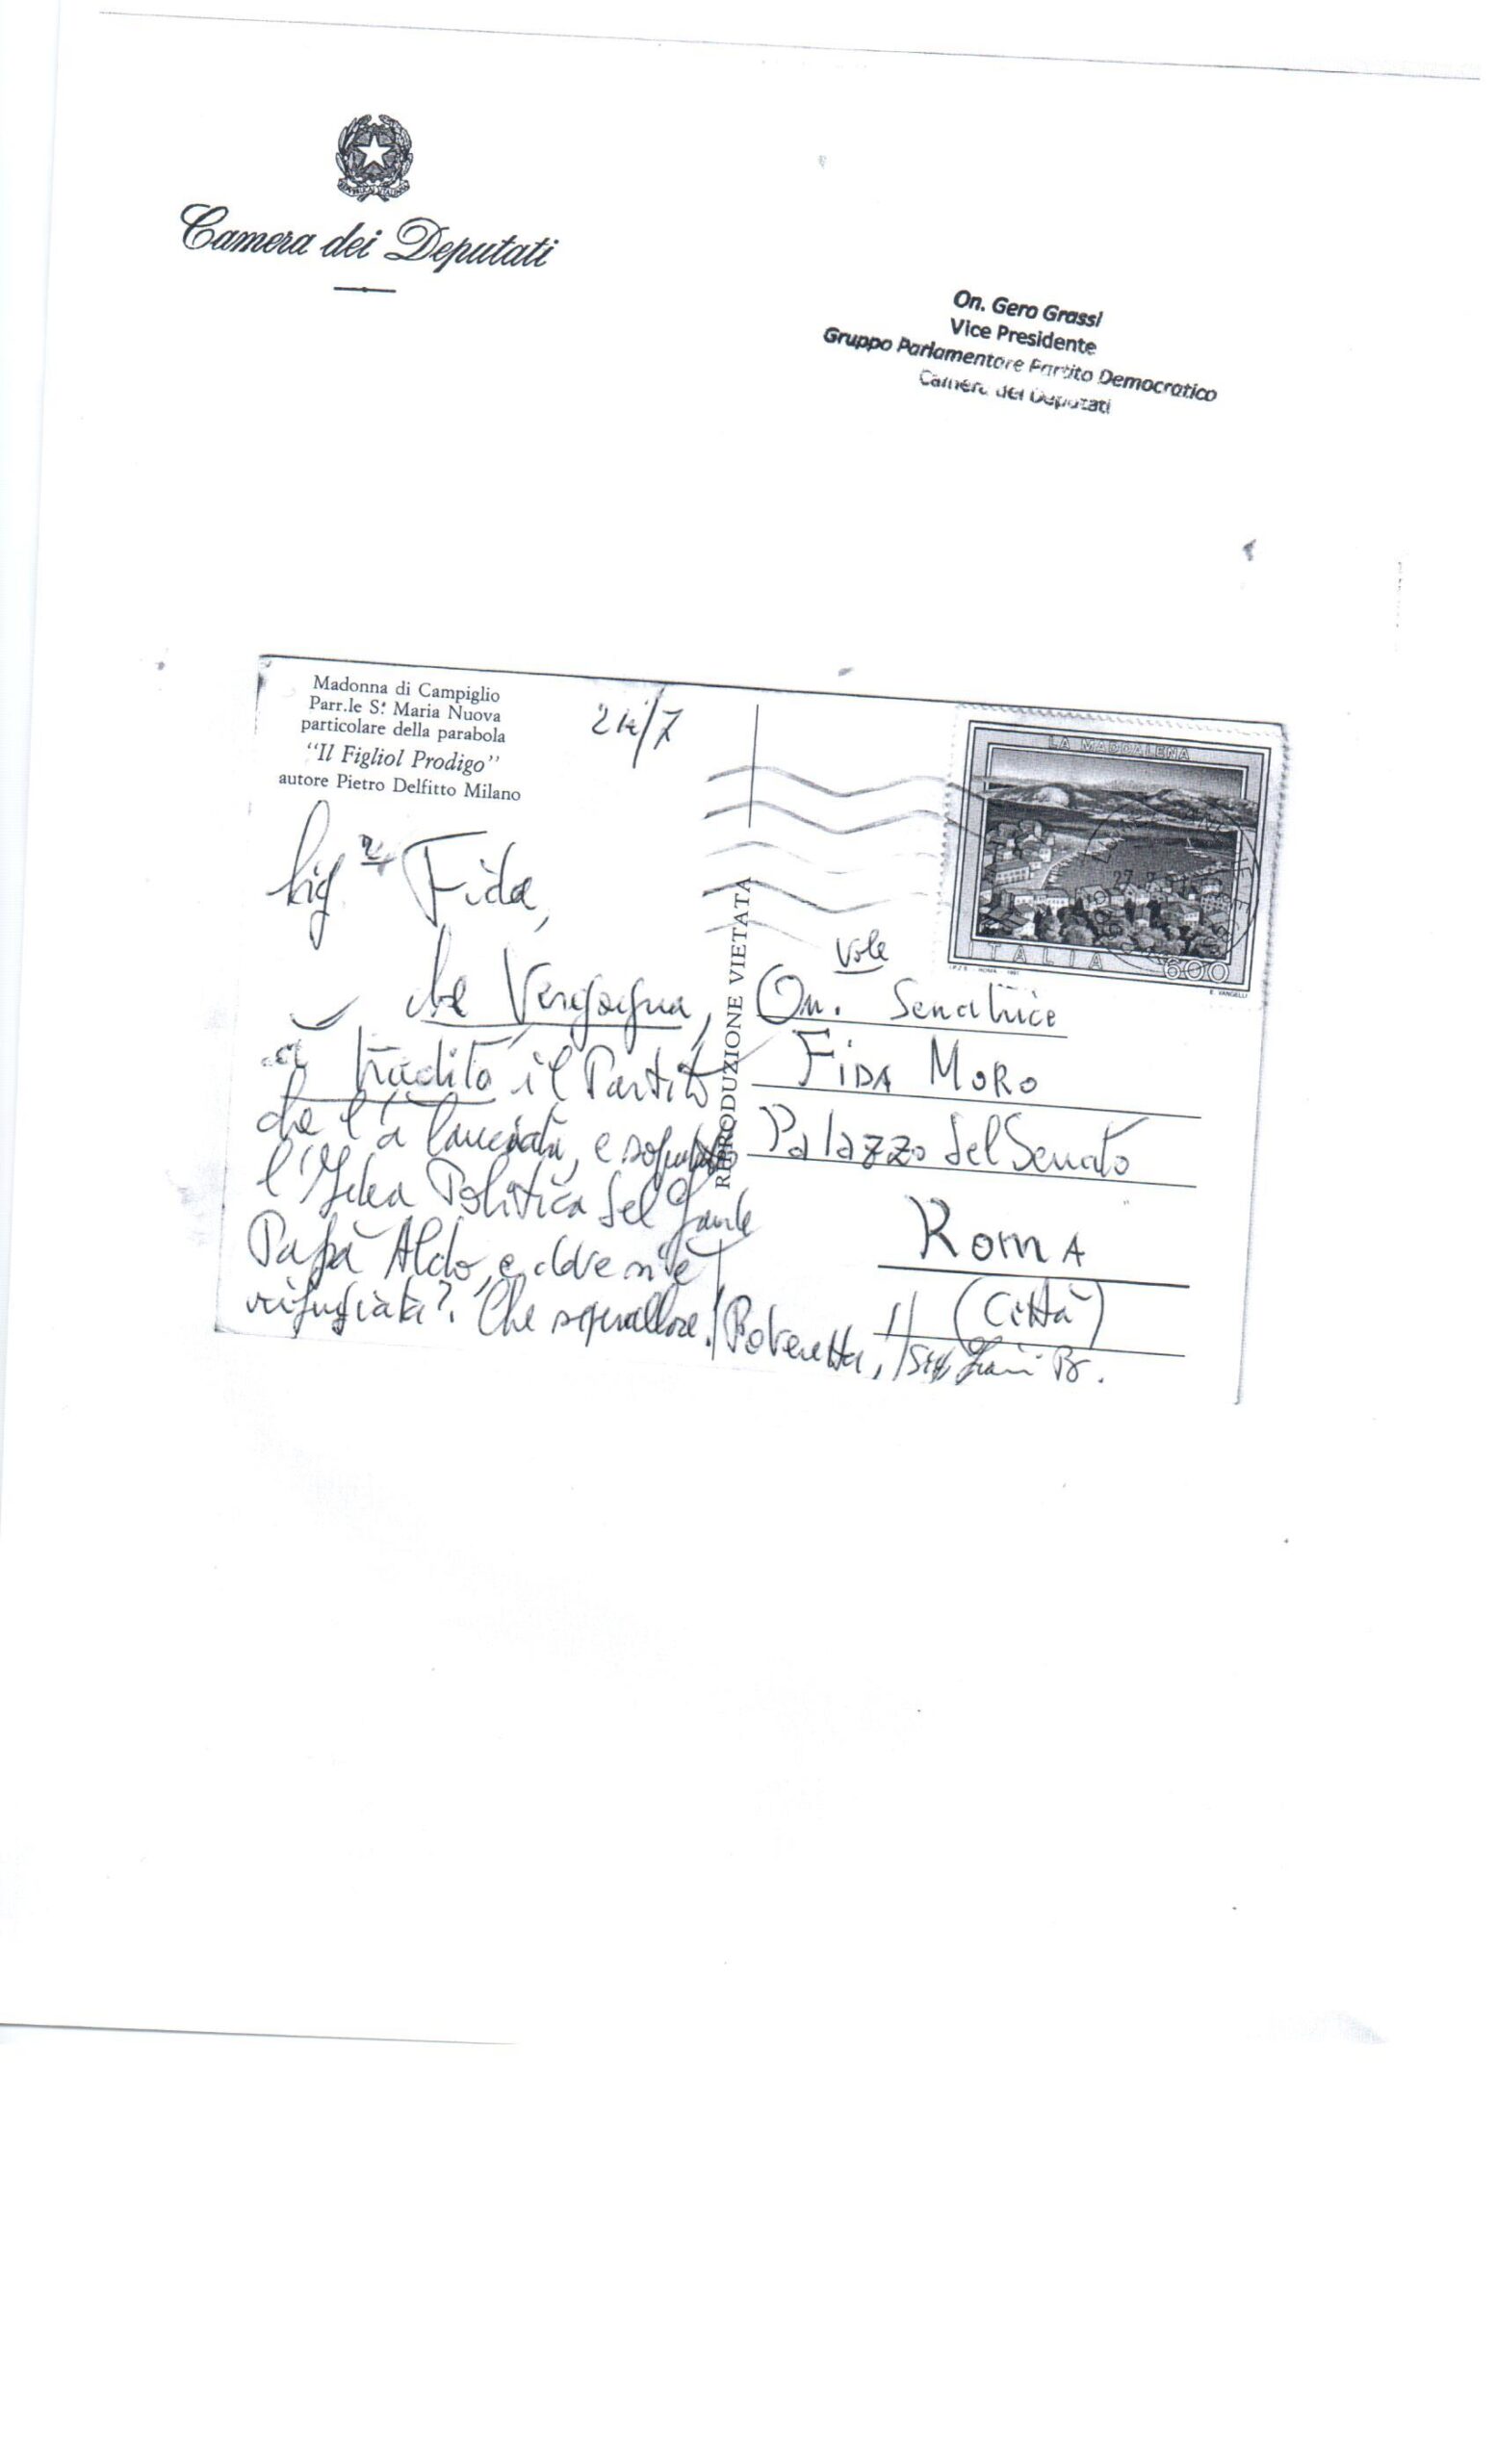 Camera dei Deputati
On. Gero Grassi
Vice Presidente
Gruppo Parlamentare Partito Democratico
Camera dei Deputati
Madonna di Campiglio
Parr.le S.ª Maria Nuova
particolare della parabola
"Il Figliol Prodigo"
autore Pietro Delfitto Milano
Fida,
che Vergogna,
à tradito il Partito
che l'à lanciata, e
l'Idea Politica del
Papà Aldo, e dove si è
rifugiata?. Che squallore! Poveretta,
REPRODUZIONE VIETATA
LA MADDALENA
ITALIA 600
I.P.Z.S. - ROMA - 1981
E. VANGELLI
On.vole Senatrice
FIDA MORO
Palazzo del Senato
ROMA
(Città)